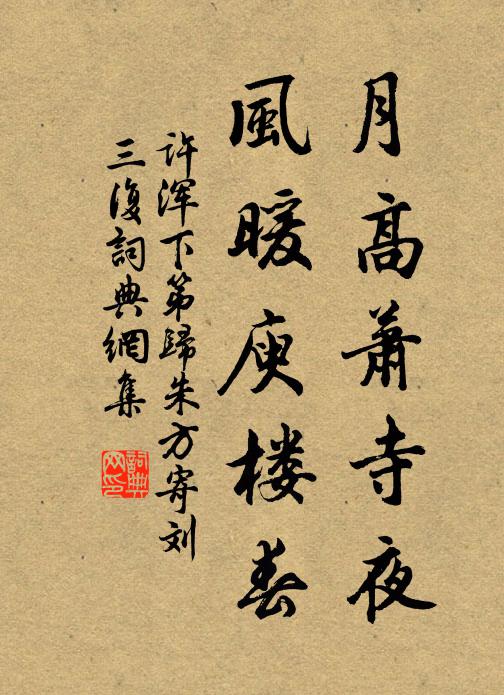 月高萧寺夜
風暖庾楼春
许浑下第歸朱方寄刘
三復詞典網集
詞典
网印